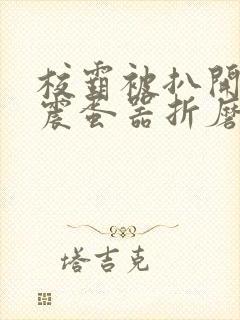 校霸被扒開
震蛋器折磨
塔吉克